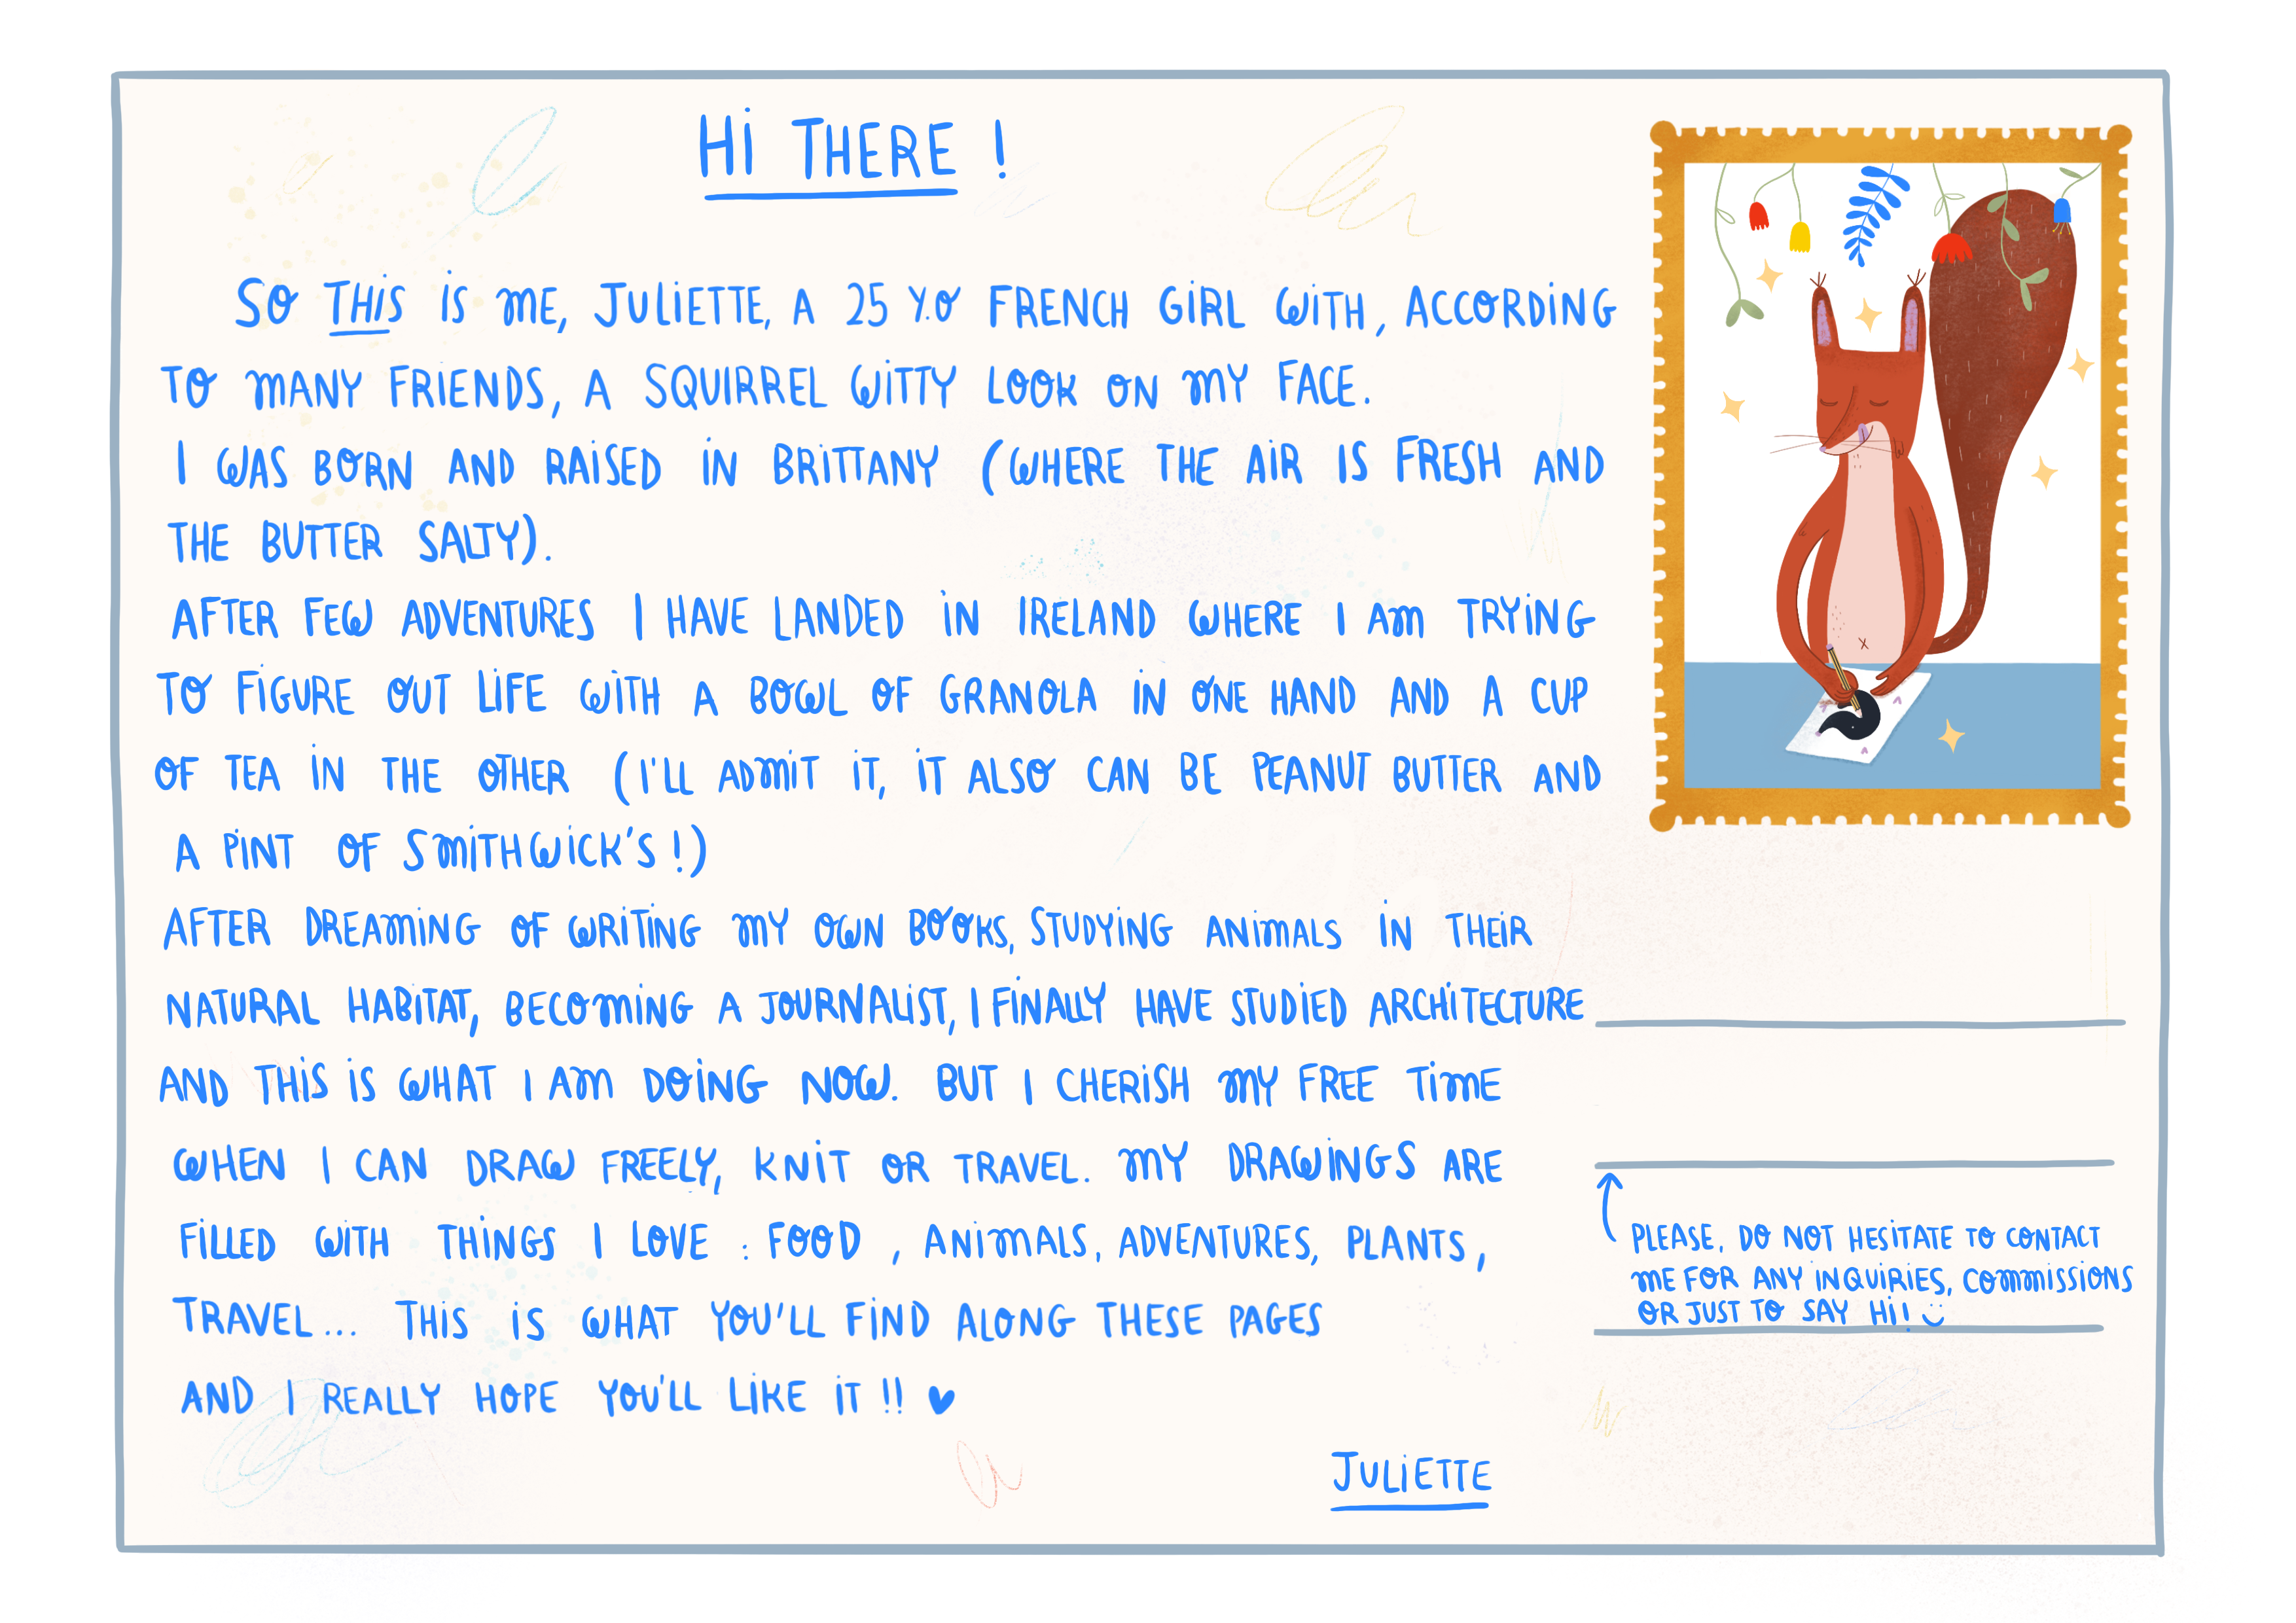 Hi THERE !
SO THIS IS ME, JULIETTE, A 25 Y.O FRENCH GIRL WITH, ACCORDING
TO MANY FRIENDS, A SQUIRREL WITTY LOOK ON MY FACE.
I WAS BORN AND RAISED IN BRITTANY (WHERE THE AIR IS FRESH AND
THE BUTTER SALTY).
AFTER FEW ADVENTURES I HAVE LANDED IN IRELAND WHERE I AM TRYING
TO FIGURE OUT LIFE WITH A BOWL OF GRANOLA IN ONE HAND AND A CUP
OF TEA IN THE OTHER (I'LL ADMIT IT, IT ALSO CAN BE PEANUT BUTTER AND
A PINT OF SMITHWICK'S !)
AFTER DREAMING OF WRITING MY OWN BOOKS, STUDYING ANIMALS IN THEIR
NATURAL HABITAT, BECOMING A JOURNALIST, I FINALLY HAVE STUDIED ARCHITECTURE
AND THIS IS WHAT I AM DOING NOW. BUT I CHERISH MY FREE TIME
WHEN I CAN DRAW FREELY, KNIT OR TRAVEL. MY DRAWINGS ARE
FILLED WITH THINGS I LOVE : FOOD , ANIMALS, ADVENTURES, PLANTS,
TRAVEL... THIS IS WHAT YOU'LL FIND ALONG THESE PAGES
AND I REALLY HOPE YOU'LL LIKE IT !! ♥
JULIETTE
PLEASE, DO NOT HESITATE TO CONTACT
ME FOR ANY INQUIRIES, COMMISSIONS
OR JUST TO SAY HI! :)